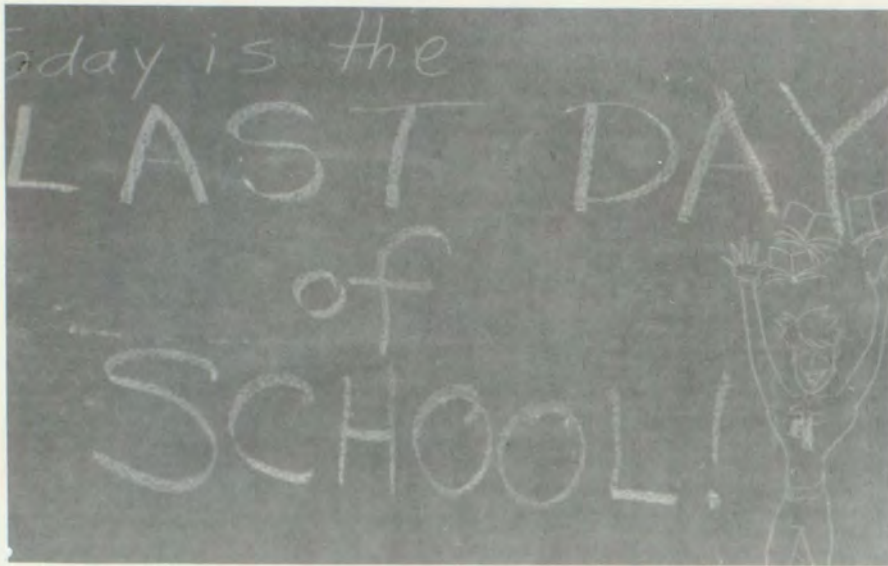 Today is the
LAST DAY
of
SCHOOL!